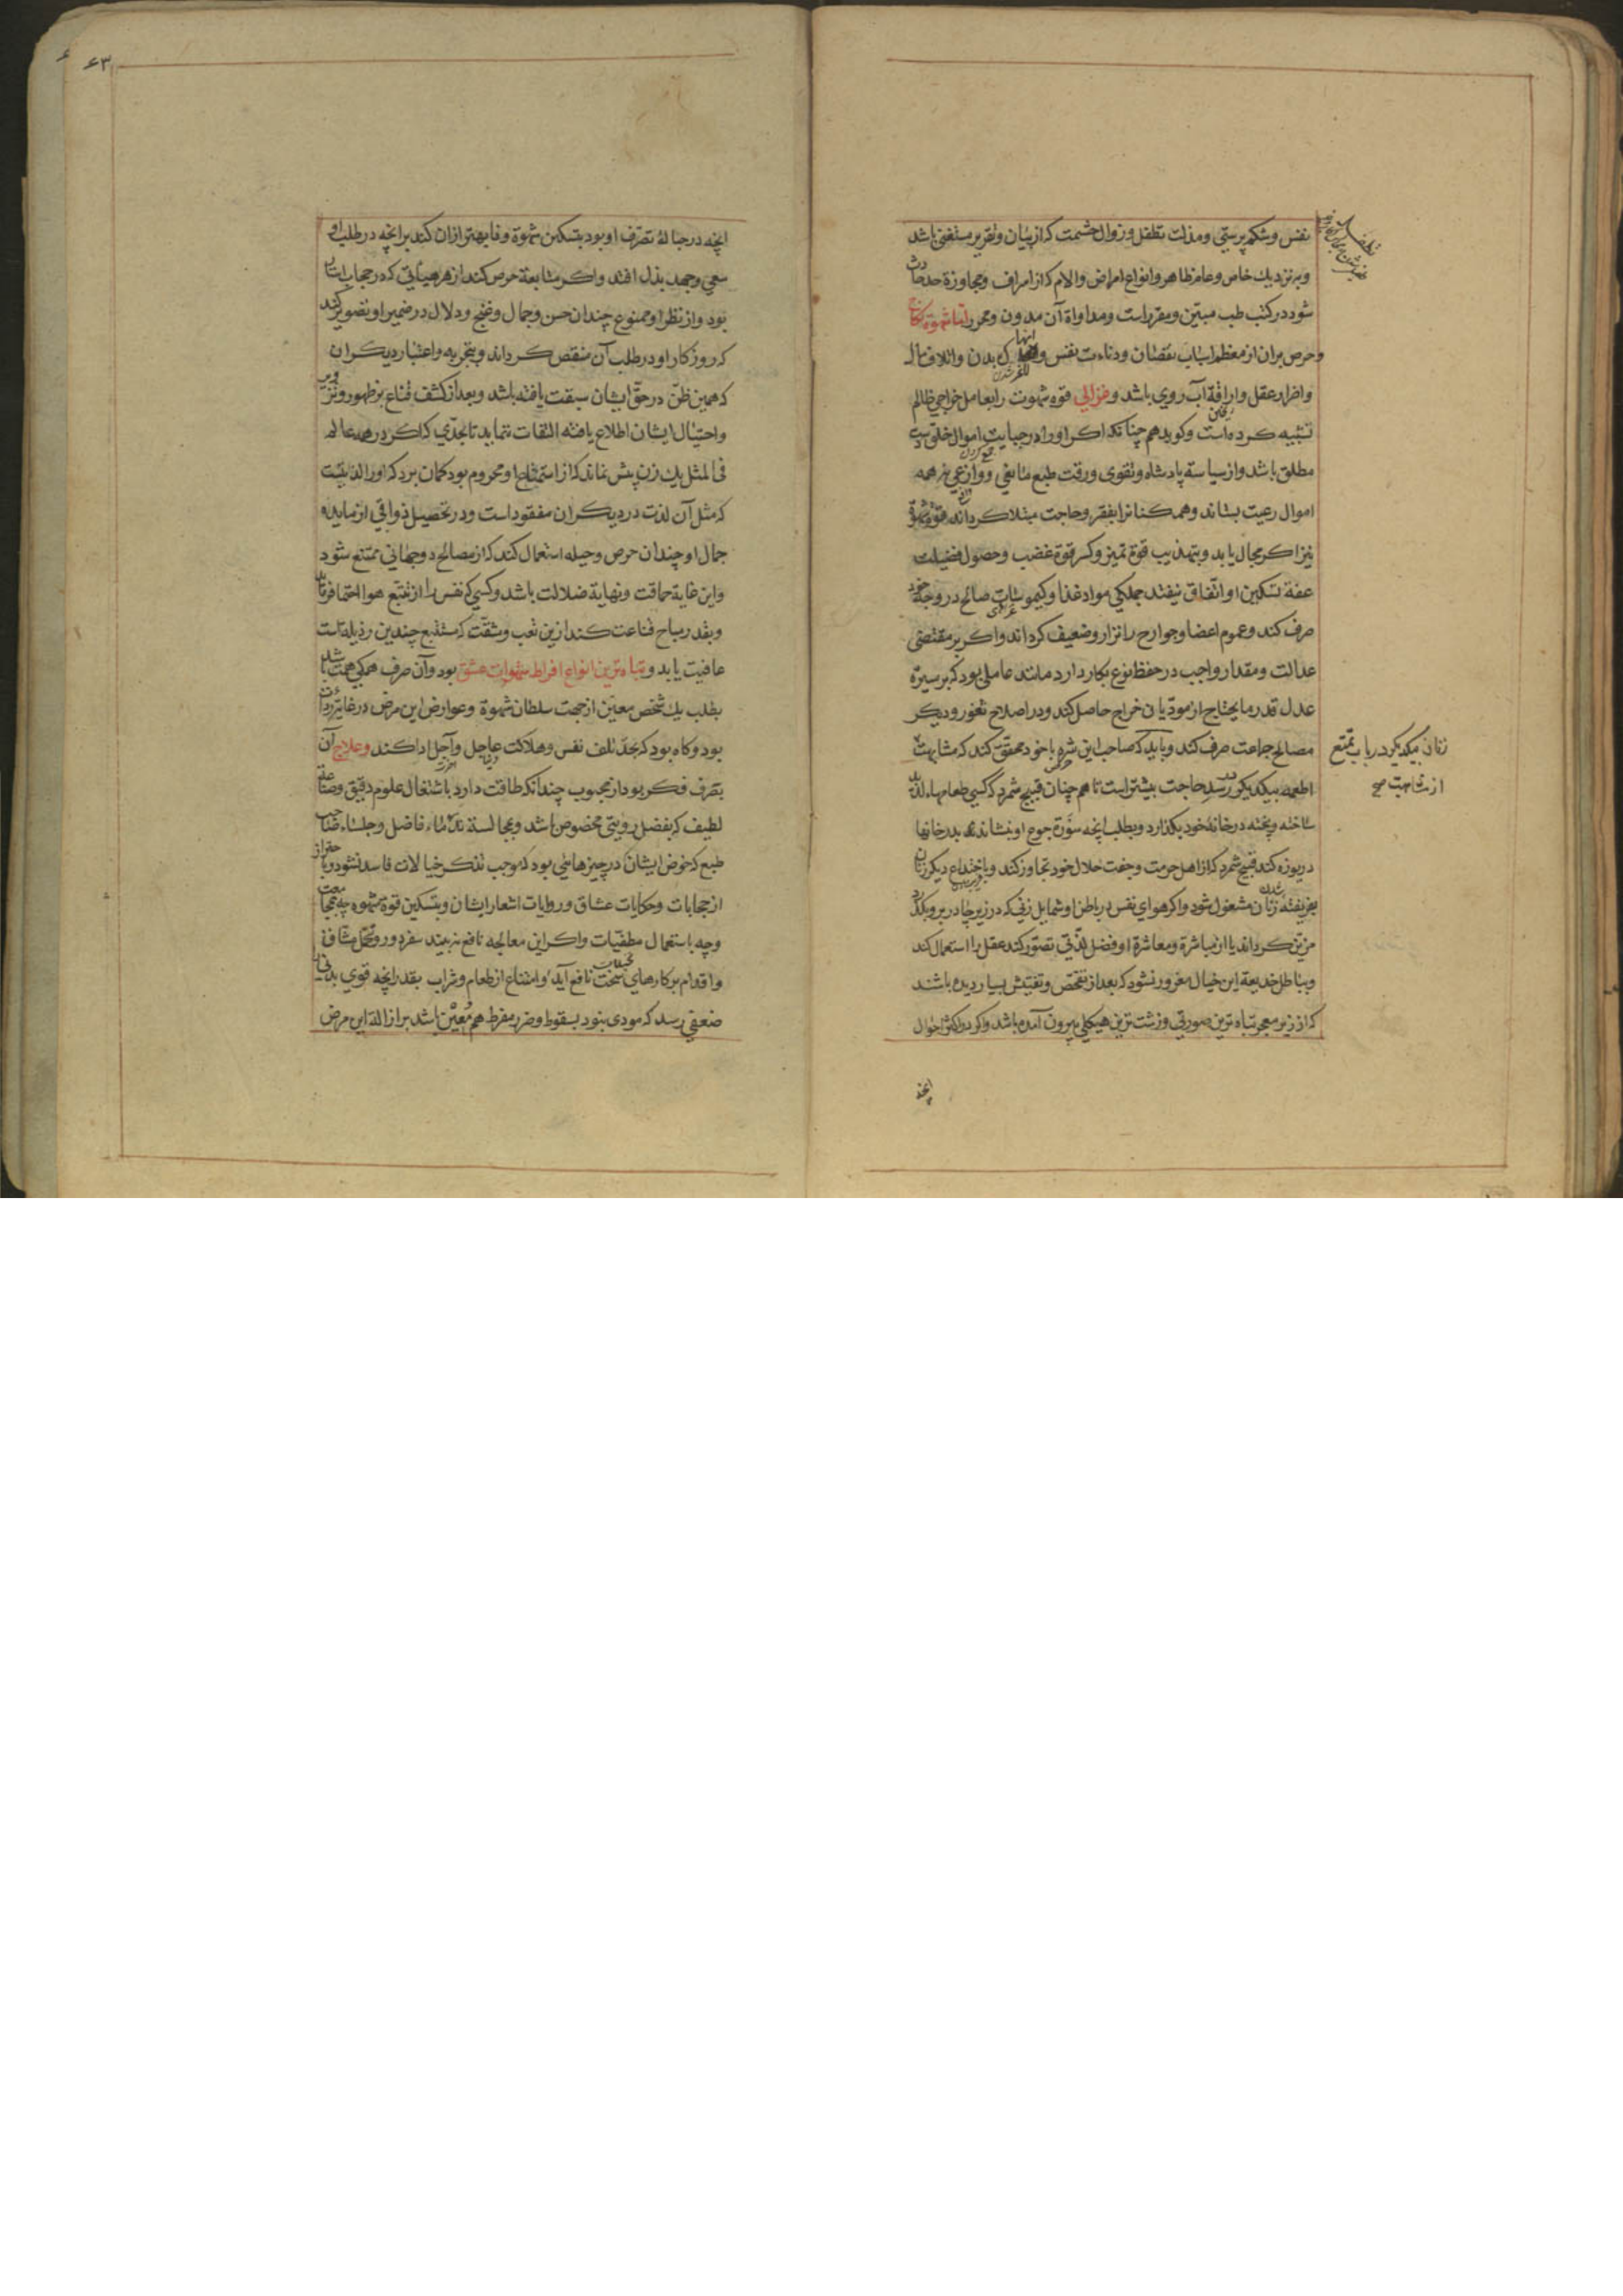 نفس وشکم پرستی ومذلت تطفل وزوال حشمت که از بیان وتقریر مستغنی باشد
وبه نزدیك خاص وعام ظاهر وانواع امراض والام که از اسراف ومجاوزة حد حادث
شود در کتب طب مبین ومقرر است ومداواة آن مدون ومحرر اما شهوة نکاح
وحرص بران از معظم اسباب نقصان ودناءت نفس وانهاك بدن واتلاف مال
واضرار عقل واراقة آب روی باشد وغزالی قوه شهوت را بعامل خراجی ظالم
تشبیه کرده است وکوید همچنانکه اکر او را در جبایت اموال خلق دست
مطلق باشد واز سیاسة پادشاه وتقوی ورقت طبع مانعی ووازعی نه همه
اموال رعیت بستاند وهمکنانرا بفقر وحاجت مبتلا کرداند قوة شهوة
نیز اکر مجال یابد وبتهذیب قوة تمیز وکسر قوة غضب وحصول فضیلت
عفة تسکین او اتفاق نیفتد جملکی مواد غذا وکیموسات صالح در وجه خود
صرف کند وعموم اعضا وجوارح را نزار وضعیف کرداند واکر بر مقتضی
عدالت ومقدار واجب در حفظ نوع بکار دارد مانند عاملی بود که بر سیرة
عدل قدر مایحتاج از مودیان خراج حاصل کند ودر اصلاح ثغور ودیکر
مصالح جماعت صرف کند وباید که صاحب این شره با خود محقق کند که مشابهت
زنان بیکدیکر در باب تمتع
از مشابهت صح
اطعمه بیکدیکر در سد حاجت بیشتر است تا همچنان قبیح شمرد که کسی طعامهاء لذیذ
ساخته وپخته در خانه خود بکذارد وبطلب انچه سورة جوع او بنشاند بدر خانها
دریوزه کند قبیح شمرد که از اهل حرمت وجفت حلال خود تجاوز کند وباختداع دیکر زنان
بفریفته زنان مشغول شود واکر هوای نفس در باطن او شمایل زنی که در زیر چادر برو بکذرد
مزین کرداند یا از مباشرة ومعاشرة او فضل لذتی تصور کند عقل را استعمال کند
وبباطل خدیعة این خیال مغرور نشود که بعد از تفحص وتفتیش بسیار دیده باشند
که از زیر معجر تباه ترین صورتی وزشت ترین هیکلی بیرون آمده باشد واکر در اکثر احوال
انچه
۶۳
انچه در حباله تصرف او بود بتسکین شهوة وفا بهتر ازان کند بر انچه در طلب او
سعی وجهد بذل افتد واکر متابعة حرص کند از هر هیأتی که در حجاب استتار
بود واز نظر او ممنوع چندان حسن وجمال وغنج ودلال در ضمیر او تصویر کند
که روزکار او در طلب آن منغص کرداند وبتجربه واعتبار دیکران
که همین ظن در حق ایشان سبقت یافته باشد وبعد از کشف قناع بر ظهور وتزویر
واحتیال ایشان اطلاع یافته التفات ننماید تا بحدی که اکر در همه عالم
فی المثل یك زن بیش نماند که از استمتاع او محروم بود کمان برد که اورا لذتیست
که مثل آن لذت در دیکران مفقود است ودر تحصیل ذواقی از مایده
جمال او چندان حرص وحیله استعمال کند که از مصالح دوجهانی ممتنع شود
واین غایة حماقت ونهایة ضلالت باشد وکسی که نفس را از تتبع هوا احتما فرماید
وبقدر مباح قناعت کند ازین تعب ومشقت که مستتبع چندین رذیله است
عافیت یابد وتباه ترین انواع افراط شهوات عشق بود وآن صرف همکی همت باشد
بطلب یك شخص معین از جهت سلطان شهوة وعوارض این مرض در غایة رداءت
بود وکاه بود که بحد تلف نفس وهلاکت عاجل وآجل ادا کند وعلاج آن
بصرف فکر بود از محبوب چندانکه طاقت دارد باشتغال علوم دقیق وصناعات
لطیف که بفضل رویتی مخصوص باشد وبمجالسة ندماء فاضل وجلساء صاحب
طبع که خوض ایشان در چیزهائی بود که موجب تذکر خیالات فاسد نشود وباحتراز
از حکایات عشاق وروایات اشعار ایشان وبتسکین قوة شهوه چه بمجامعت
وچه باستعمال مطفیات واکر این معالجه نافع نه بیند سفر دور وتحمل مشاق
واقدام بر کارهای سخت نافع آید وامتناع از طعام وشراب بقدر انچه قوی بدنی را
ضعفی رسد که مودی بنود بسقوط وضرر مفرط هم معین باشد بر ازالة این مرض